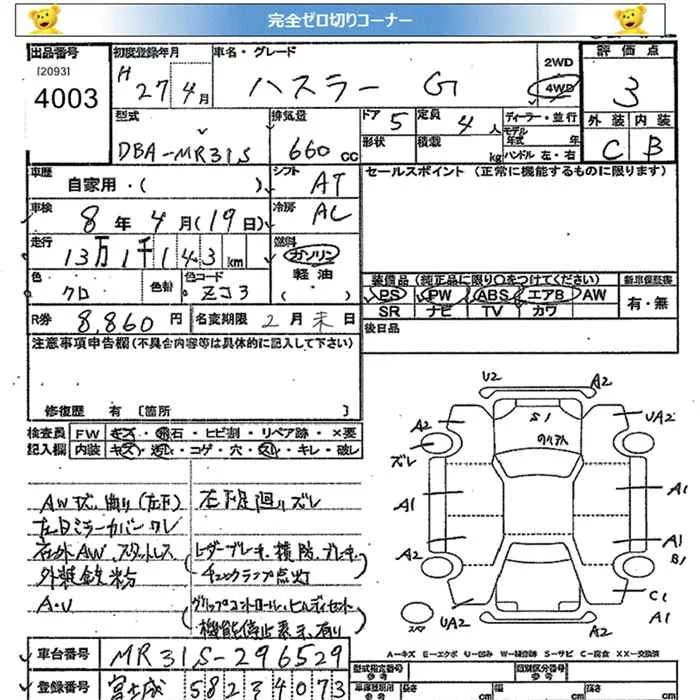 完全ゼロ切りコーナー
出品番号 初度登録年月 車名・グレード 2WD 評価点
[2093] H 27年4月 ハスラー G 4WD 3
4003
型式 排気量 ドア 5 定員 4人 ディーラー・並行 外装 内装
モデル年式 年
DBA-MR31S 660cc 形状 積載 kg ハンドル 左・右 C B
車歴 シフト セールスポイント (正常に機能するものに限ります)
自家用・( ) AT
車検 冷房
8年4月(19日) AC
走行 燃料
13万1千143km ガソリン
色 色替 色コード 軽油 装備品(純正品に限り○をつけてください) 新車保証書
クロ ZJ3 ( ) PS PW ABS エアB AW 有・無
SR ナビ TV カワ
R券 8,860円 名変期限 2月末日 後日品
注意事項申告欄(不具合内容等は具体的に記入して下さい)
修復歴 有 [箇所 ]
U2 A2
検査員 FW キズ・飛石・ヒビ割・リペア跡・×要
記入欄 内装 キズ・汚レ・コゲ・穴・スレ・キレ・破レ
A2 S1 UA2
ズレ
A1 A1
A2 A1
B1
C1
UA2 A1
A2
AW状、曲り(左下) 左下廻りズレ
左日ミラーカバーワレ
右外AW、スタットレス レーダーブレーキ、横防、ブレーキ
外装鉄粉 チェックランプ点灯
A・U グリップコントロール、ヒルディセント
機能停止表示有り
車台番号 MR31S-296529
登録番号 富士 582 4073
A-キズ E-エクボ U-凹み W-補修跡 S-サビ C-腐食 XX-交換済
型式指定番号 類別区分番号
参考 長さ cm 幅 cm 高さ cm